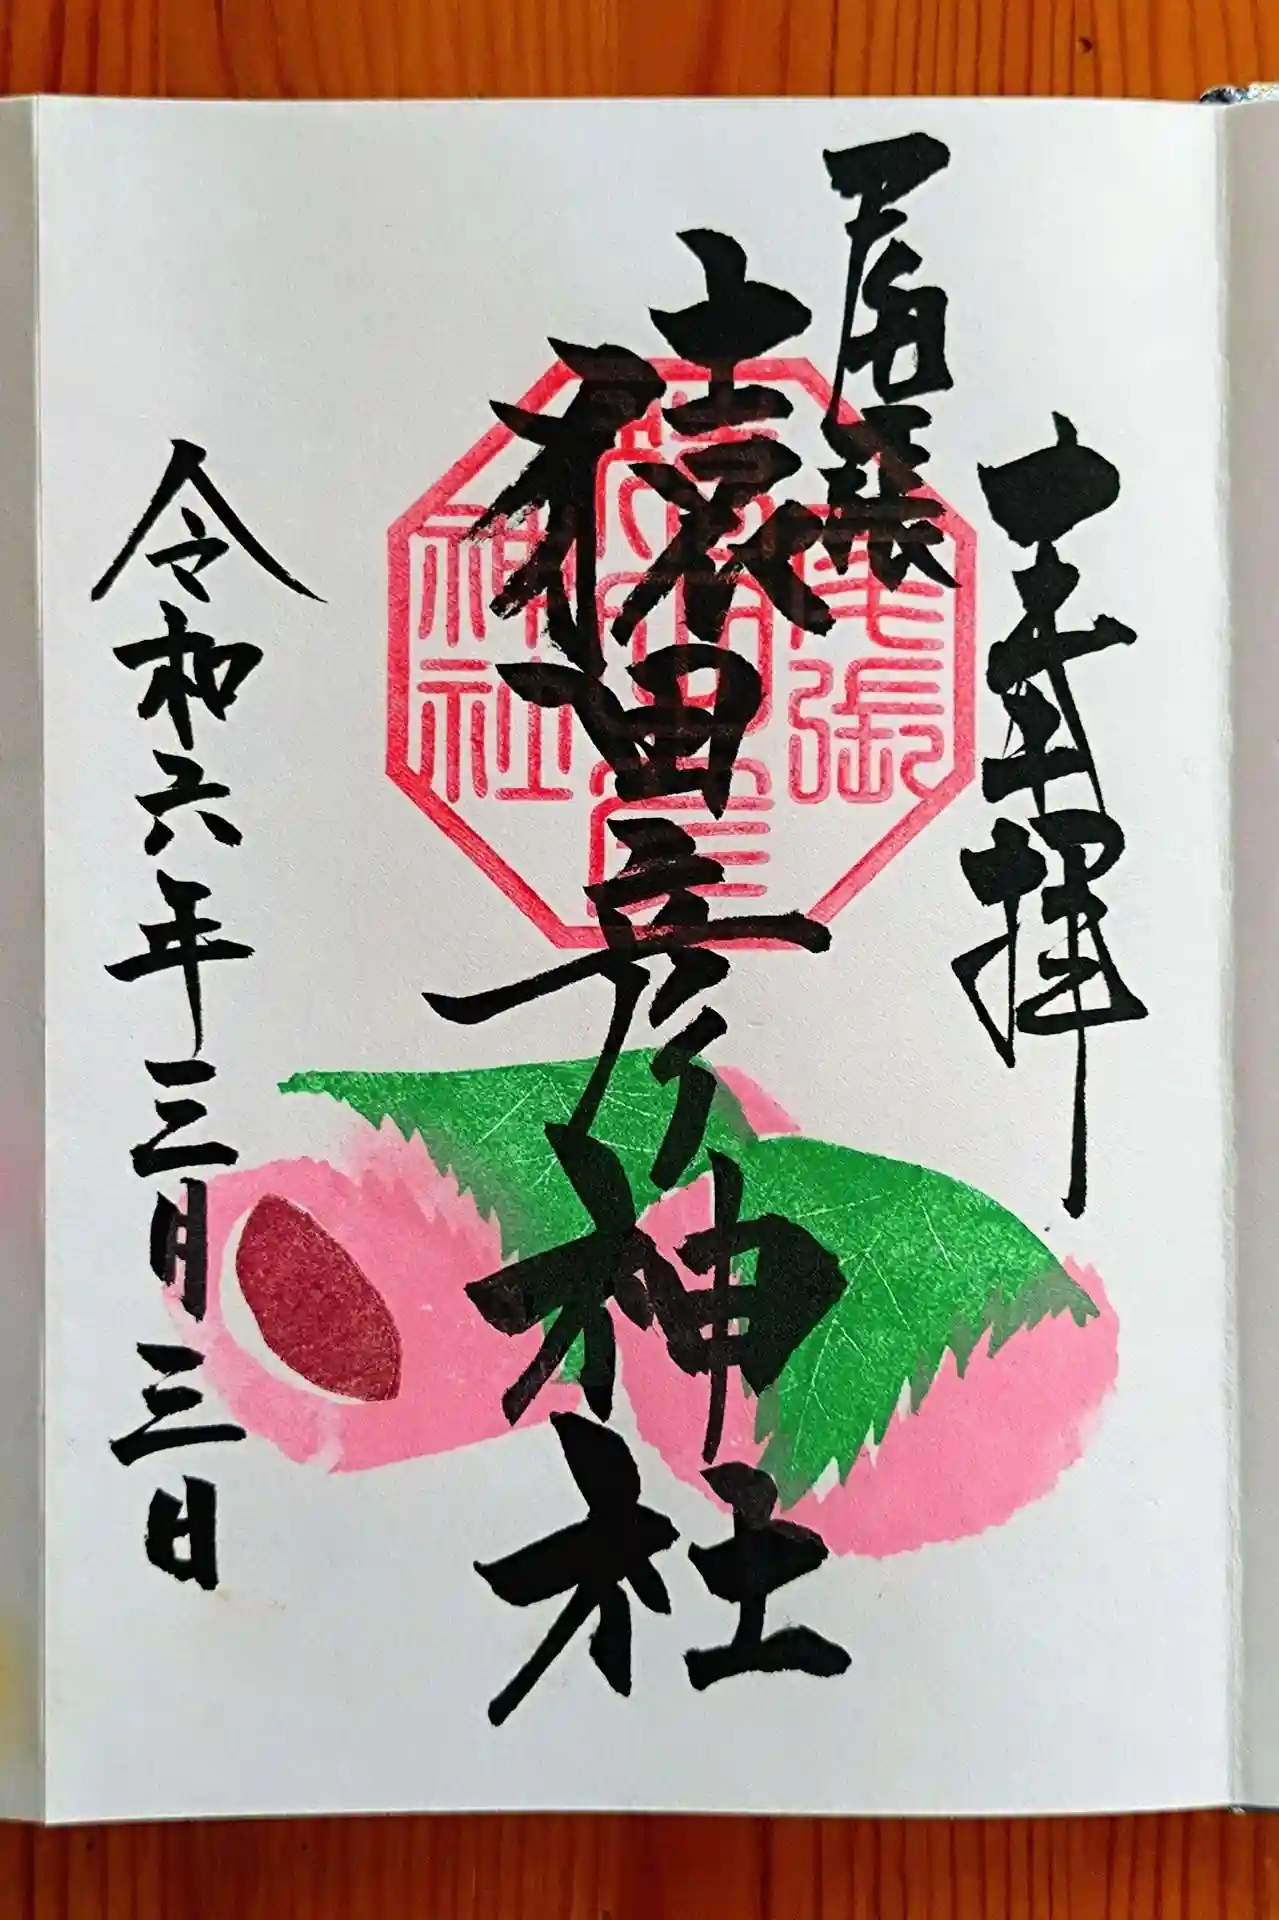 奉拝
尾張
猿田彦神社
令和六年三月三日
尾張
猿田彦
神社